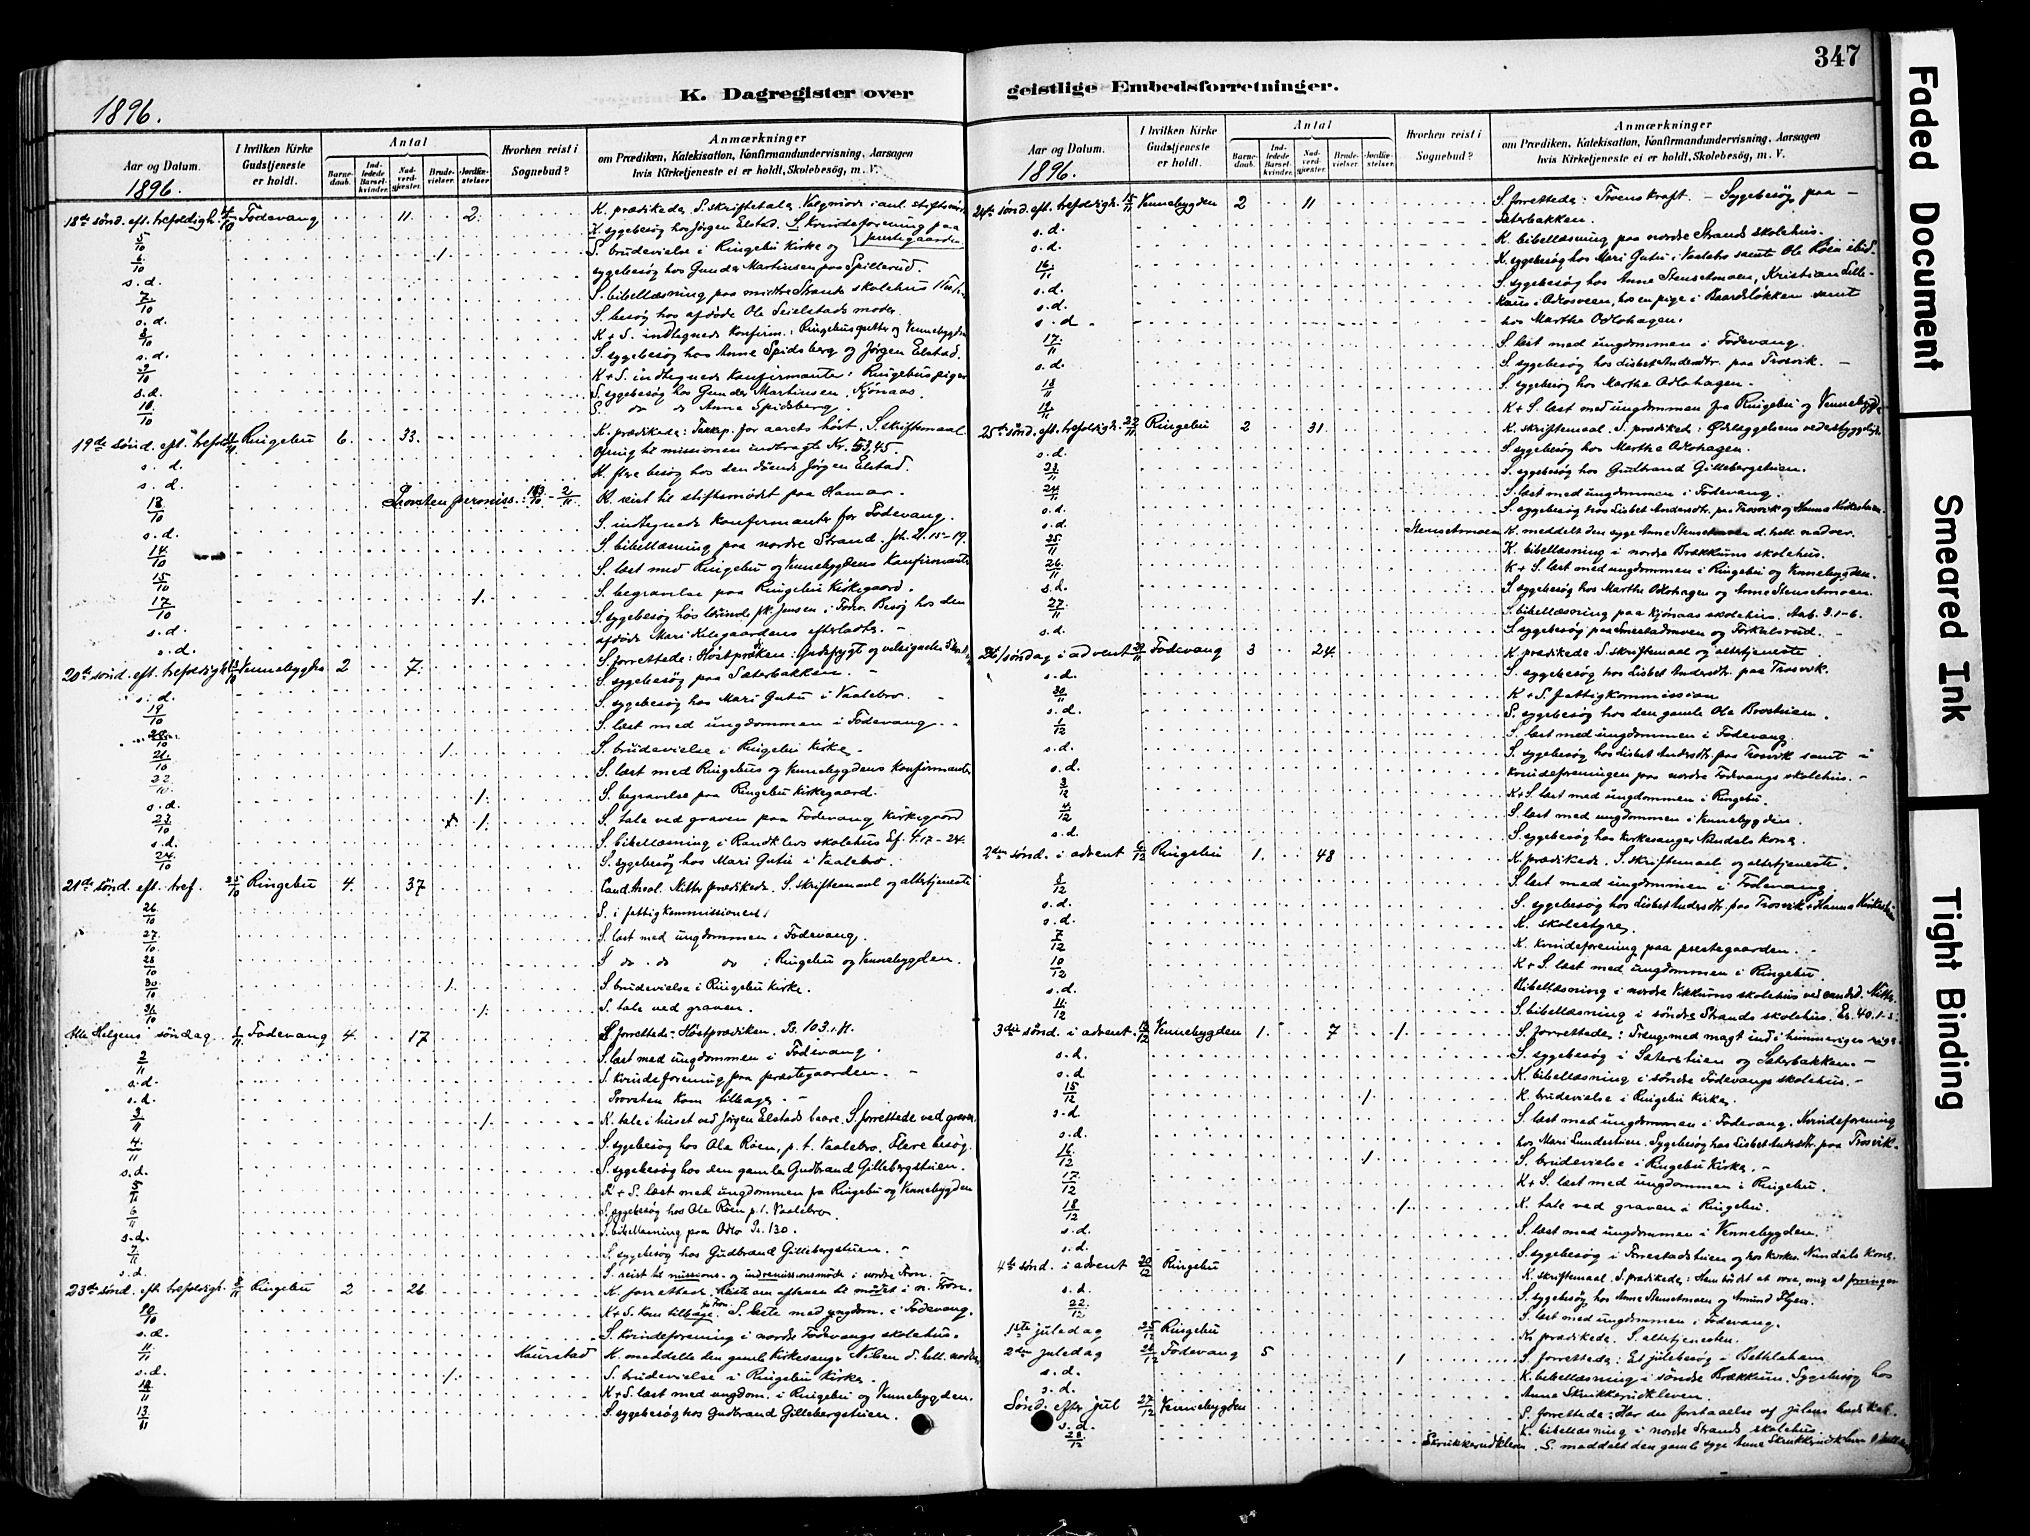 347
K. Dagregister over
geistlige Embedsforretninger.
1896.
Aar og Datum.
I hvilken Kirke Gudstjeneste er holdt.
Antal
Barne-daab.
Ind-ledede Barsel-kvinder.
Nad-verd-gjester.
Brude-vielser.
Jordfæ-stelser.
Hvorhen reist i Sognebud?
Anmærkninger
om Prædiken, Katekisation, Konfirmandundervisning, Aarsagen
hvis Kirketjeneste ei er holdt, Skolebesøg, m. V.
1896.
18de sønd. eft. trefoldigh. 4/10 Fodevang 11. 2. K. prædikede, S. skriftetale.
K. sygebesøg hos Jørgen Elstad. S. kvindeforening paa prestegaarden
5/10 1. S. brudevielse i Ringebu Kirke og
6/10 sygebesøg hos Gunder Martinsen paa Spillerud.
s. d. S. bibellæsning paa midtre Strands skolehus
7/10 S. besøg hos afdøde Ole Seielstads moder.
s. d. K + S. indtegnede Konfirm.: Ringebus gutter og Vennebygden
8/10 S. sygebesøg hos Anne Spidsberg og Jørgen Elstad.
s. d. K + S. indtegnede Konfirmanter: Ringebus piger
9/10 S. sygebesøg hos Gunder Martinsen, Kjønaas.
s. d. S. do do Anne Spidsberg.
10/10
19de sønd. eft. trefold. Ringebu 6. 33. K. prædikede: Takkep. for aarets høst. S. skriftemaal
s. d. Ofring til missionen indbragt Kr. 53,45.
s. d. K. flere besøg hos den døende Jørgen Elstad.
13/10 K. reist til stiftsmødet paa Hamar.
s. d. S. indtegnede Konfirmanter for Fodevang.
14/10 S. bibellæsning paa nordre Strand. Joh. 2. 15-19.
15/10 S. læst med Ringebu og Vennebygdens Konfirmanter
17/10 1. S. begravelse paa Ringebu Kirkegaard.
s. d. S. sygebesøg hos Jensen, Besøg hos den
s. d. afdøde Mari Kilegaardens efterladte.
20de sønd. eft. trefoldigh. 18/10 Vennebygden 2 7. S. forrettede: Høstpræken:
s. d. S. sygebesøg paa Sæterbakken.
19/10 S. sygebesøg hos Mari Gutu i Vaalebro.
20/10 S. læst med ungdommen i Fodevang.
21/10 1. S. brudevielse i Ringebu Kirke.
22/10 S. læst med Ringebus og Vennebygdens Konfirmanter
s. d. 1. S. begravelse paa Ringebu Kirkegaard.
23/10 1. S. tale ved graven paa Fodevang Kirkegaard
s. d. S. bibellæsning i Randklevs skolehus Ef. 4. 17-24.
24/10 S. sygebesøg hos Mari Gutu i Vaalebro.
21de sønd. eft. tref. 25/10 Ringebu 4. 37 Cand. theol. Nitter prædikede. S. skriftemaal og altertjeneste
26/10 S. i fattigkommissionen.
27/10 S. læst med ungdommen i Fodevang.
28/10 S do do do i Ringebu og Vennebygden.
30/10 1. S. brudevielse i Ringebu kirke.
31/10 1. S. tale ved graven.
Alle Helgens søndag 1/11 Fodevang 4. 17 S. forrettede: Høstprædiken. Ps. 103. 1 ff.
2/11 S. læst med ungdommen i Fodevang.
s. d. S. kvindeforening paa præstegaarden.
s. d. Provsten kom tilbage.
3/11 1. K. tale i huset ved Jørgen Elstads baare. S. forrettede ved graven
4/11 S. sygebesøg hos Ole Røen, p. t. Vaalebro. Flere besøg.
s. d. S. sygebesøg hos den gamle Gudbrand Gillebergstuen.
5/11 K + S. læst med ungdommen fra Ringebu og Vennebygden
6/11 S. sygebesøg hos Ole Røen p. t. Vaalebro.
s. d. S. bibellæsning paa Odlo Ps. 130.
7/11 S. sygebesøg hos Gudbrand Gillebergstuen.
s. d. S. reist til missions- og indremissionsmøde i nordre Fron.
23de sønd. eft. trefoldigh. 8/11 Ringebu 2 26 K. forrettede. Reiste om aftenen til mødet i n. Fron.
10/11 K + S. kom tilbage fra Fron. S. læste med ungdom. i Fodevang.
s. d. S. kvindeforening i nordre Fodevangs skolehus.
11/11 Maurstad K. meddelte den gamle Kirkesanger Nilsen d. hell. nadver
s. d. 1. S. brudevielse i Ringebu Kirke.
12/11 K + S. læst med ungdom. i Ringebu og Vennebygden.
13/11 S. sygebesøg hos Gudbrand Gillebergstuen.
Aar og Datum.
1896.
I hvilken Kirke Gudstjeneste er holdt.
Antal
Barne-daab.
Ind-ledede Barsel-kvinder.
Nad-verd-gjester.
Brude-vielser.
Jordfæ-stelser.
Hvorhen reist i Sognebud?
Anmærkninger
om Prædiken, Katekisation, Konfirmandundervisning, Aarsagen
hvis Kirketjeneste ei er holdt, Skolebesøg, m. V.
24de sønd. eft. trefoldigh. 15/11 Vennebygden 2 11 S. forrettede: Troens kraft. - Sygebesøg paa
s. d. Sæterbakken.
s. d. K. bibellæsning paa nordre Strands skolehus.
16/11 K. sygebesøg hos Mari Gutu i Vaalebro samt Ole Røen ibid.
s. d. S. sygebesøg hos Anne Stensetmoen, Kristian Lille-
s. d. hos en pige i Baardsløkken samt
s. d. hos Marthe Odlohagen.
17/11 S. læst med ungdommen i Fodevang.
s. d. S. sygebesøg hos Lisbet Andersdtr. paa Trosvik.
18/11 S. sygebesøg hos Marthe Odlohagen.
19/11 K + S. læst med ungdommen fra Ringebu og Vennebygden
25de sønd. eft. trefoldigh. 22/11 Ringebu 2 31. K. skriftemaal. S. prædikede: Ødelæggelsens vederstyggelighed
s. d. S. sygebesøg hos Marthe Odlohagen.
23/11 S. sygebesøg hos Gudbrand Gillebergstuen.
24/11 S. læst med ungdommen i Fodevang.
s. d. S. sygebesøg hos Lisbet Andersdtr. paa Trosvik og Hanna Kirkestuen
s. d. Stensetmoen K. meddelt den syge Anne Stensetmoen d. hell. nadver.
25/11 K. bibellæsning i nordre Brækkums skolehus.
26/11 K + S. læst med ungdommen i Ringebu og Vennebygden.
s. d. S. sygebesøg hos Marthe Odlohagen og Anne Stensetmoen.
27/11 S. bibellæsning paa Kjønaas skolehus. Aab. 3. 1-6.
s. d. S. sygebesøg paa og Forkalsrud.
1ste søndag i advent 29/11 Fodevang 3 24. K. prædikede S. skriftemaal og altertjeneste.
s. d. S. sygebesøg hos Lisbet Andersdtr. paa Trosvik.
30/11 K + S. fattigkommission
s. d. S. sygebesøg hos den gamle Ole Brostuen.
1/12 S. læst med ungdommen i Fodevang.
s. d. S. sygebesøg hos Lisbet Andersdtr. paa Trosvik samt i
s. d. Kvindeforeningen paa nordre Fodvangs skolehus.
3/12 K + S. læst med ungdommen i Ringebu.
4/12 S. læst med ungdommen i Vennebygden.
s. d. S. sygebesøg hos Kirkesanger Nundals kone.
2den sønd. i advent 6/12 Ringebu 1. 48 K. prædikede. S. skriftemaal og altertjeneste.
8/12 S. læst med ungdommen i Fodevang.
s. d. S. sygebesøg hos Lisbet Andersdtr. paa Trosvik + Hanna Kirkestuen
s. d. K. skolestyre.
7/12 K. kvindeforening paa prestegaarden.
10/12 K + S. læst med ungdommen i Ringebu.
s. d. Bibellæsning i nordre Vekkums skolehus ved cand. Nitter.
11/12 S. bibellæsning i søndre Strands skolehus. Es. 40. 1-5
3die sønd. i advent 13/12 Vennebygden 1. 7 1. S. forrettede: Trænge med magt ind i himmeriges rige
s. d. S. sygebesøg i Sæterstuen og Sæterbakken.
s. d. K. bibellæsning i søndre Fodevangs skolehus.
15/12 1. K. brudevielse i Ringebu Kirke.
s. d. S. læst med ungdommen i Fodevang. Kvindeforening
s. d. hos Mari Lundestuen. Sygebesøg hos Lisbet Andersdtr. paa Trosvik.
16/12 1. S. brudevielse i Ringebu Kirke.
17/12 K + S. læst med ungdommen i Ringebu.
18/12 1. K. tale ved graven i Ringebu.
s. d. S. læst med ungdommen i Vennebygden.
s. d. S. sygebesøg i Forrestadstuen og hos Kirkes. Nundals kone.
4de sønd. i advent 20/12 Ringebu K. skriftemaal. S. prædikede:
s. d. S. sygebesøg hos Anne Stensetmoen og Amund Flyen.
22/12 S. læst med ungdommen i Fodevang.
1ste juledag 25/12 Ringebu K. prædikede. S. altertjenesten.
2den juledag 26/12 Fodevang 5 1 S. forrettede: Et julebesøg i Bethlehem
s. d. K. bibellæsning i søndre Brækkum. Sygebesøg hos
s. d. Anne Skrukkerudkleven.
Sønd. efter jul 27/12 Vennebygden S. forrettede: Har du forstaaelse af julens budskab.
s. d. K. bibellæsning i nordre Strands skolehus.
28/12 Skrukkerudkleven S. meddelt den gamle syge Anne Skrukkerudkleven
Faded Document
Smeared Ink
Tight Binding